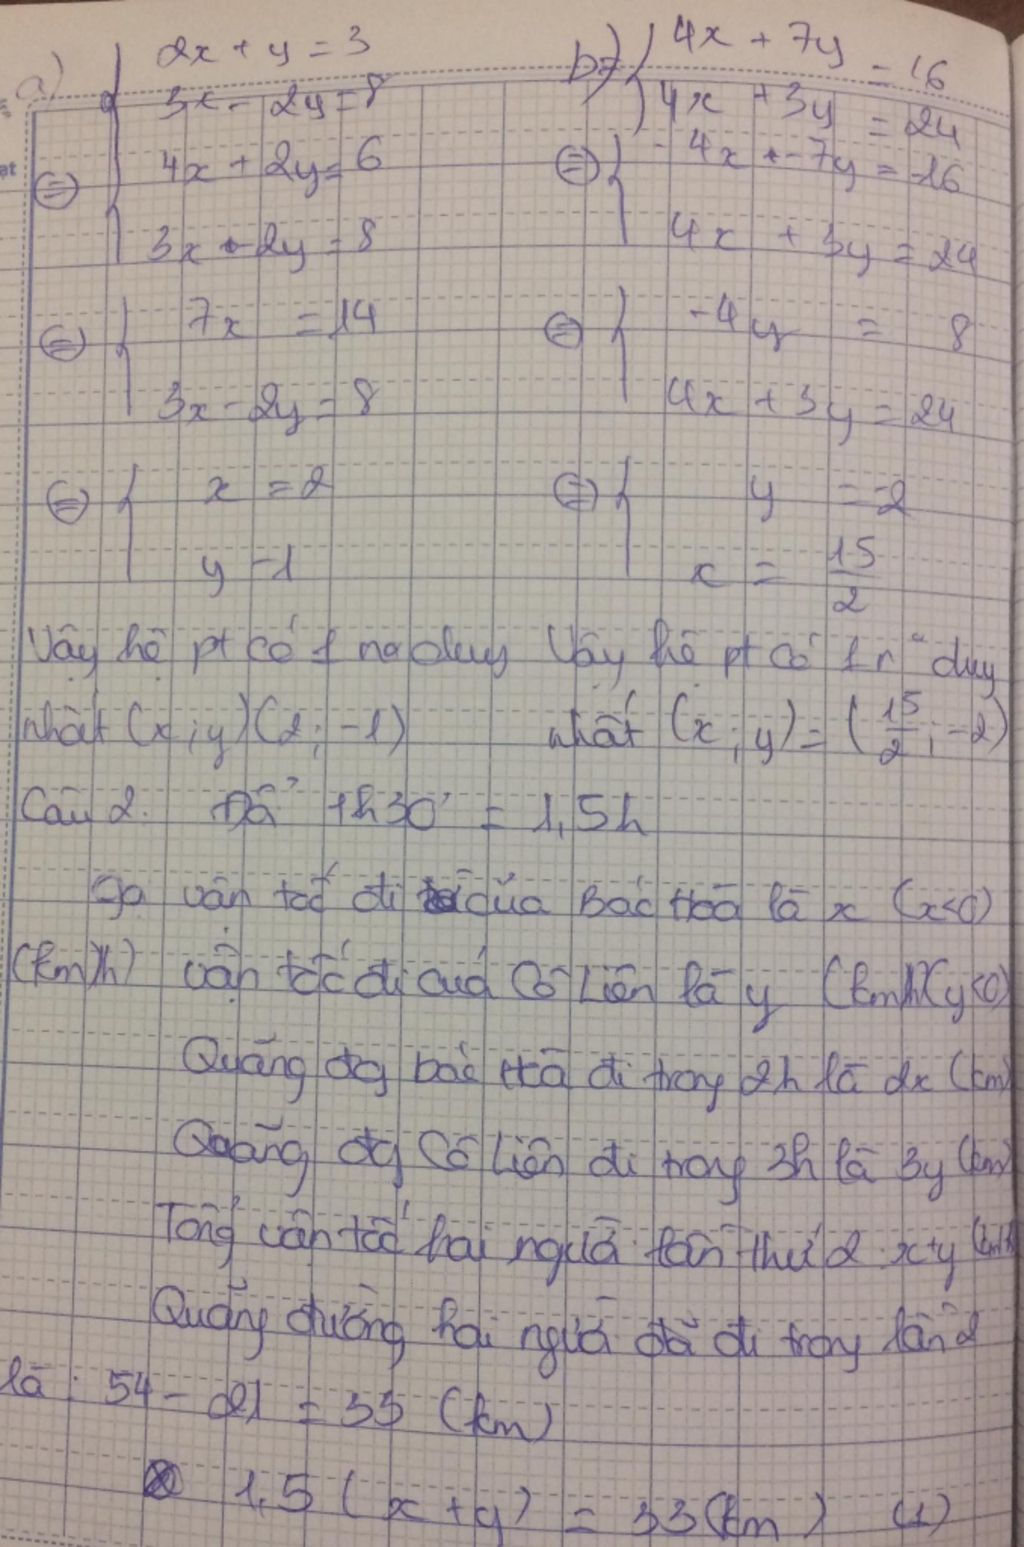 a) { 2x + y = 3
3x - 2y = 8
⇔ { 4x + 2y = 6
3x - 2y = 8
⇔ { 7x = 14
3x - 2y = 8
⇔ { x = 2
y -1
Vậy hệ pt có 1 no duy
nhất (x; y) (2; -1)
b) { 4x + 7y = 16
4x + 3y = 24
⇔ { -4x + -7y = -16
4x + 3y = 24
⇔ { -4y = 8
4x + 3y = 24
⇔ { y = -2
x = 15/2
Vậy hệ pt có 1 n° duy
nhất (x; y) = (15/2; -2)
Câu 2. Đổi 1h30' = 1,5h
Gọi vận tốc đi của Bác Hoà là x (x<0)
(km/h) vận tốc đi của Cô Liên là y (km/h)(y<0)
Quãng đg bác Hoà đi trong 2h là 2x (km)
Quãng đg Cô Liên đi trong 3h là 3y (km)
Tổng vận tốc hai người lần thứ 2 x+y (km/h)
Quãng đường hai người đã đi trong lần 2
là : 54 - 21 = 33 (km)
1,5 (x + y) = 33 (km) (1)